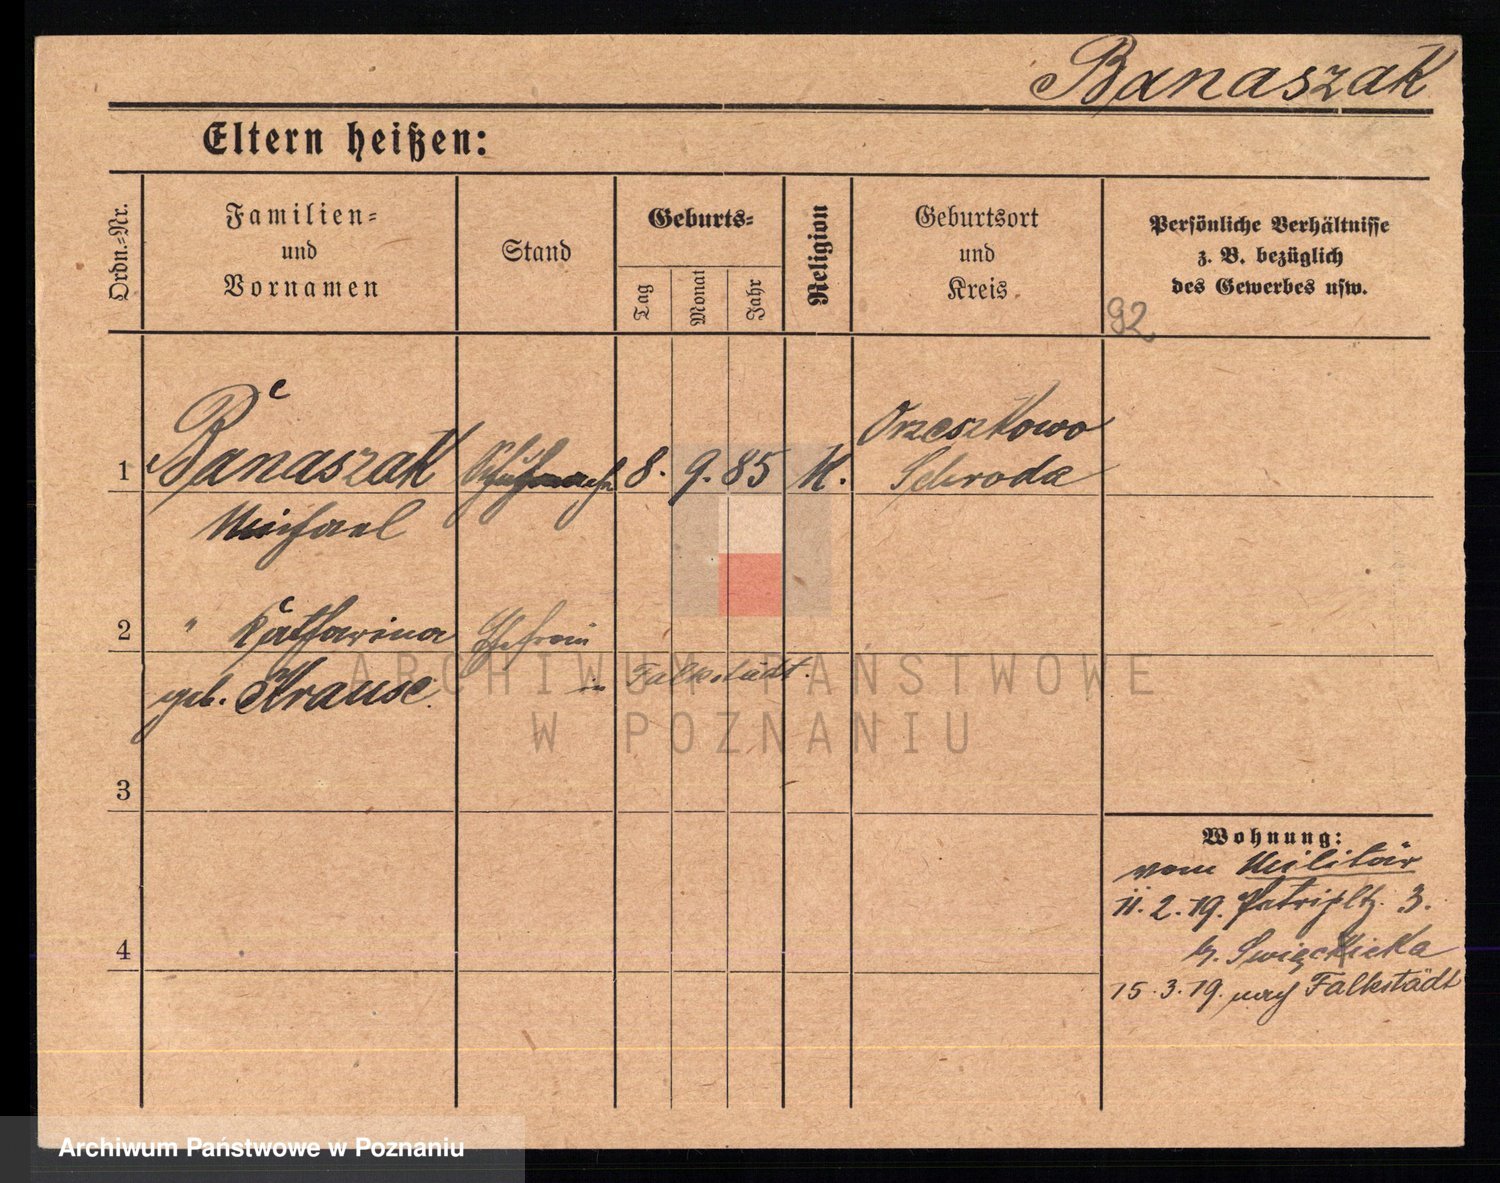 Banaszak
Eltern heißen:
Ordn.=Nr.
Familien=
und
Vornamen
Stand
Geburts=
Tag
Monat
Jahr
Religion
Geburtsort
und
Kreis
Persönliche Verhältnisse
z. B. bezüglich
des Gewerbes usw.
92
1 Banaszak 8. 9. 85 K. Orzeszkowo
Schroda
Michael
2 " Katharina Ehefrau
geb. Krause in Falkstädt.
ARCHIWUM PAŃSTWOWE
W POZNANIU
3
Wohnung:
vom Militär
11. 2. 19. Petripltz. 3.
b. Swięckicka
4
15. 3. 19. nach Falkstädt
Archiwum Państwowe w Poznaniu